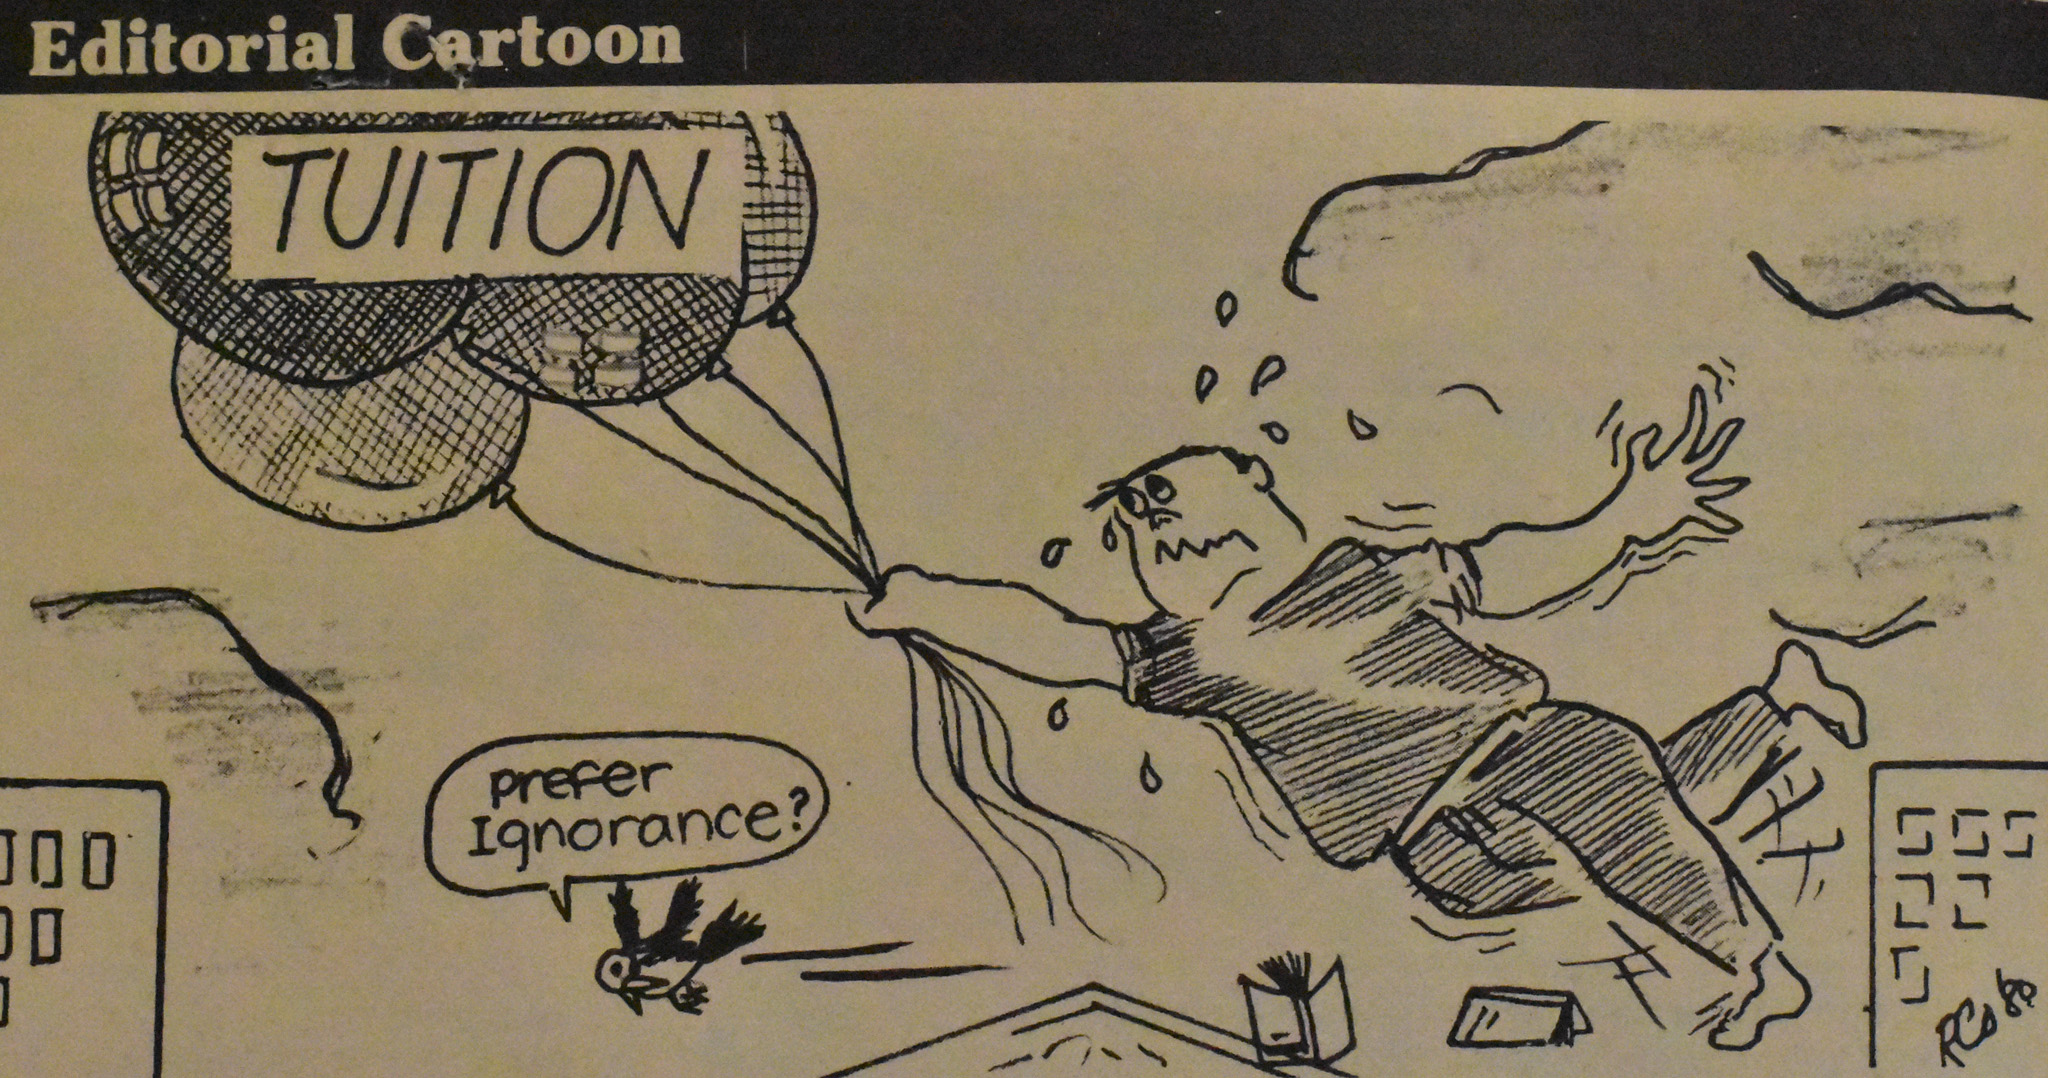 Editorial Cartoon
TUITION
prefer
Ignorance?